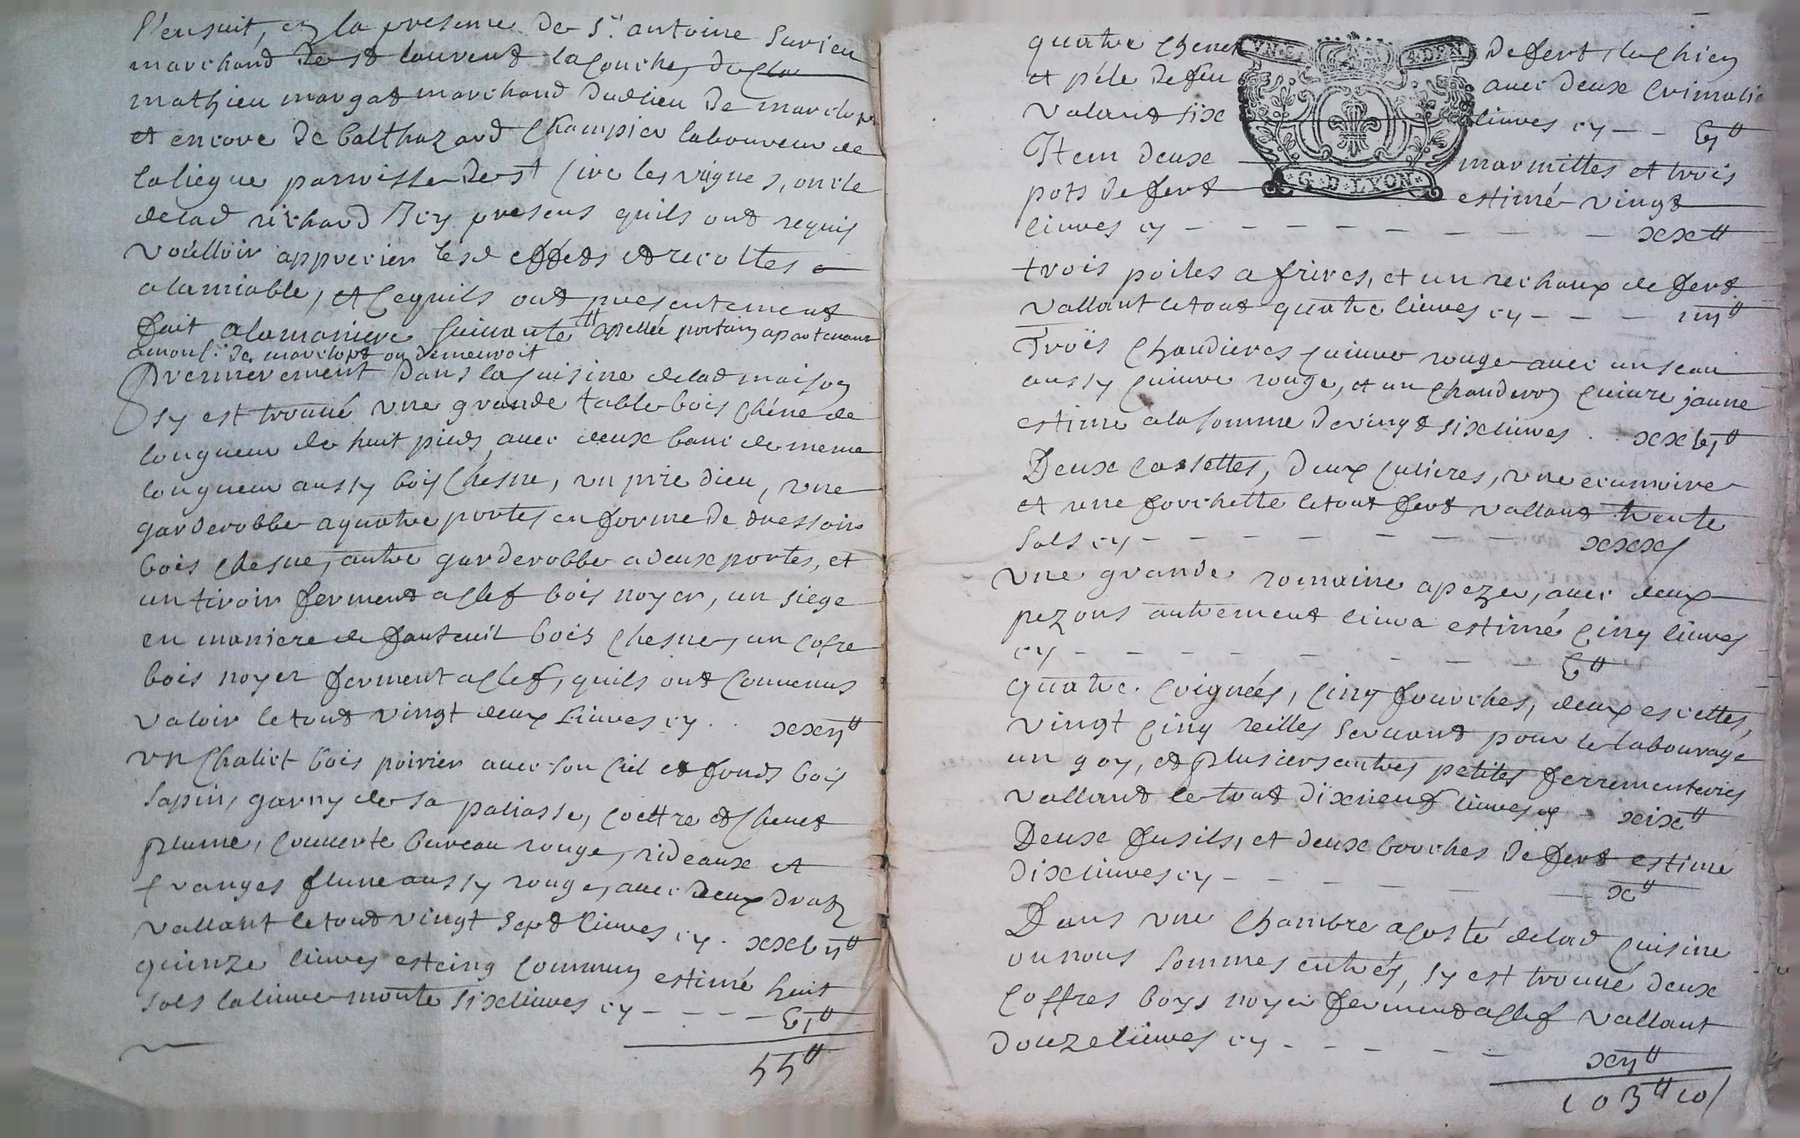 s'ensuit, en la presence de Sr. antoine Savieu
marchand de st laurent la Conche, de Sr
mathieu margat marchand dudlieu de marclop
et encore de balthazard Champier laboureur de
laliegue parroisse de st Cire les vignes, oncle
delad richard Icy presens quils ont requis
voulloir apprecier lesd effets et recoltes
alamiable, et Cequils ont presentement
fait alamaniere suivante apellée portain apartenant
amonsr. de marclopt ou demeuroit
Premierement dans la Cuisine delad maison
sy est trouué vne grande table bois Chéne de
longueur de huit pieds, avec deux banc de meme
longueur aussy bois Chesne, vn prie dieu, vne
garderobbe aquatre portes en forme de dressoir
bois Chesne, autre garderobbe a deux portes, et
un tiroir ferment a Clef bois noyer, un siege
en maniere de fauteuil bois Chesne, un Cofre
bois noyer ferment a Clef, quils ont Convenus
valoir le tout vingt deux liures cy . . xxij₶
vn Chalict bois poirier auec son Ciel et fonds bois
sapin, garny de sa paliasse, Coettre et Chevet
plume, Couuerte bureau rouge, rideaux et
franges flune aussy rouge, auec deux draps
vallant le tout vingt sept liures cy . xxvij₶
quinze liures estaing Commun estimé huit
sols la liure monte six liures cy - - - - vj₶
55₶
quatre Chenets de fert, le Chien
et péle de feu auec deux Crimalie
Valant six liures cy - - vj₶
VN S. 4 DEN
G·D·LYON·
Item deux marmittes et trois
pots de fert estimé vingt
liures cy - - - - - - - - xx₶
trois poiles a frires, et un rechaux de fert
vallant le tout quatre liures cy - - - iiij₶
Trois Chaudieres Cuiure rouge auec un seau
aussy Cuiure rouge, et un Chauderon Cuiure jaune
estimé ala somme de vingt six liures . . xxvj₶
Deux Cassettes, deux Culieres, vne ecumoire
et une fourchette le tout fert vallant trente
sols cy - - - - - - - xxxs
vne grande romaine apezer, auec deux
pezons autrement liura estimé Cinq liures
cy - - - - - - - - v₶
quatre Coignées, Cinq fourches, deux escettes,
vingt Cinq reilles seruant pour le labourage
un goy, et plusiers autres petites ferrementeries
vallant le tout dixneuf liures cy xix₶
Deux fusils, et deux bouches de fert estimé
dix liures cy - - - - - - x₶
Dans vne Chambre a Costé delad Cuisine
ou nous sommes entrés, sy est trouué deux
Coffres boys noyer ferment a Clef vallant
douze liures cy - - - - - xij₶
103₶ 10s